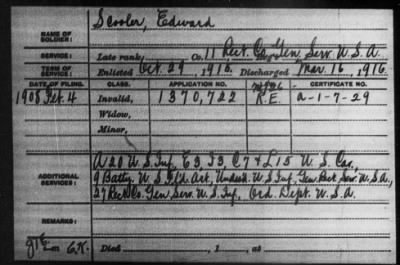 NAME OF SOLDIER: Scooler, Edward
SERVICE: Late rank, Co. 11 Rect. Co. Gen. Serv. U. S. A.
TERM OF SERVICE: Enlisted Oct. 29, 1915. Discharged Mar. 16, 1916.
DATE OF FILING. CLASS. APPLICATION NO. CERTIFICATE NO.
1908 Feb. 4 Invalid, 1370,722 R.E. a-1-7-29
Widow,
Minor,
A 20 U. S. Inf., E 3, I 3, C 7 & L 15 U. S. Cav.,
ADDITIONAL SERVICES: 9 Batty. U. S. Fld. Art., Unassd. U. S. Inf., Gen. Rect. Serv. U. S. A.,
27 Rect. Co. Gen. Serv. U. S. Inf., Ord. Dept. U. S. A.
REMARKS:
Died , 1 , at